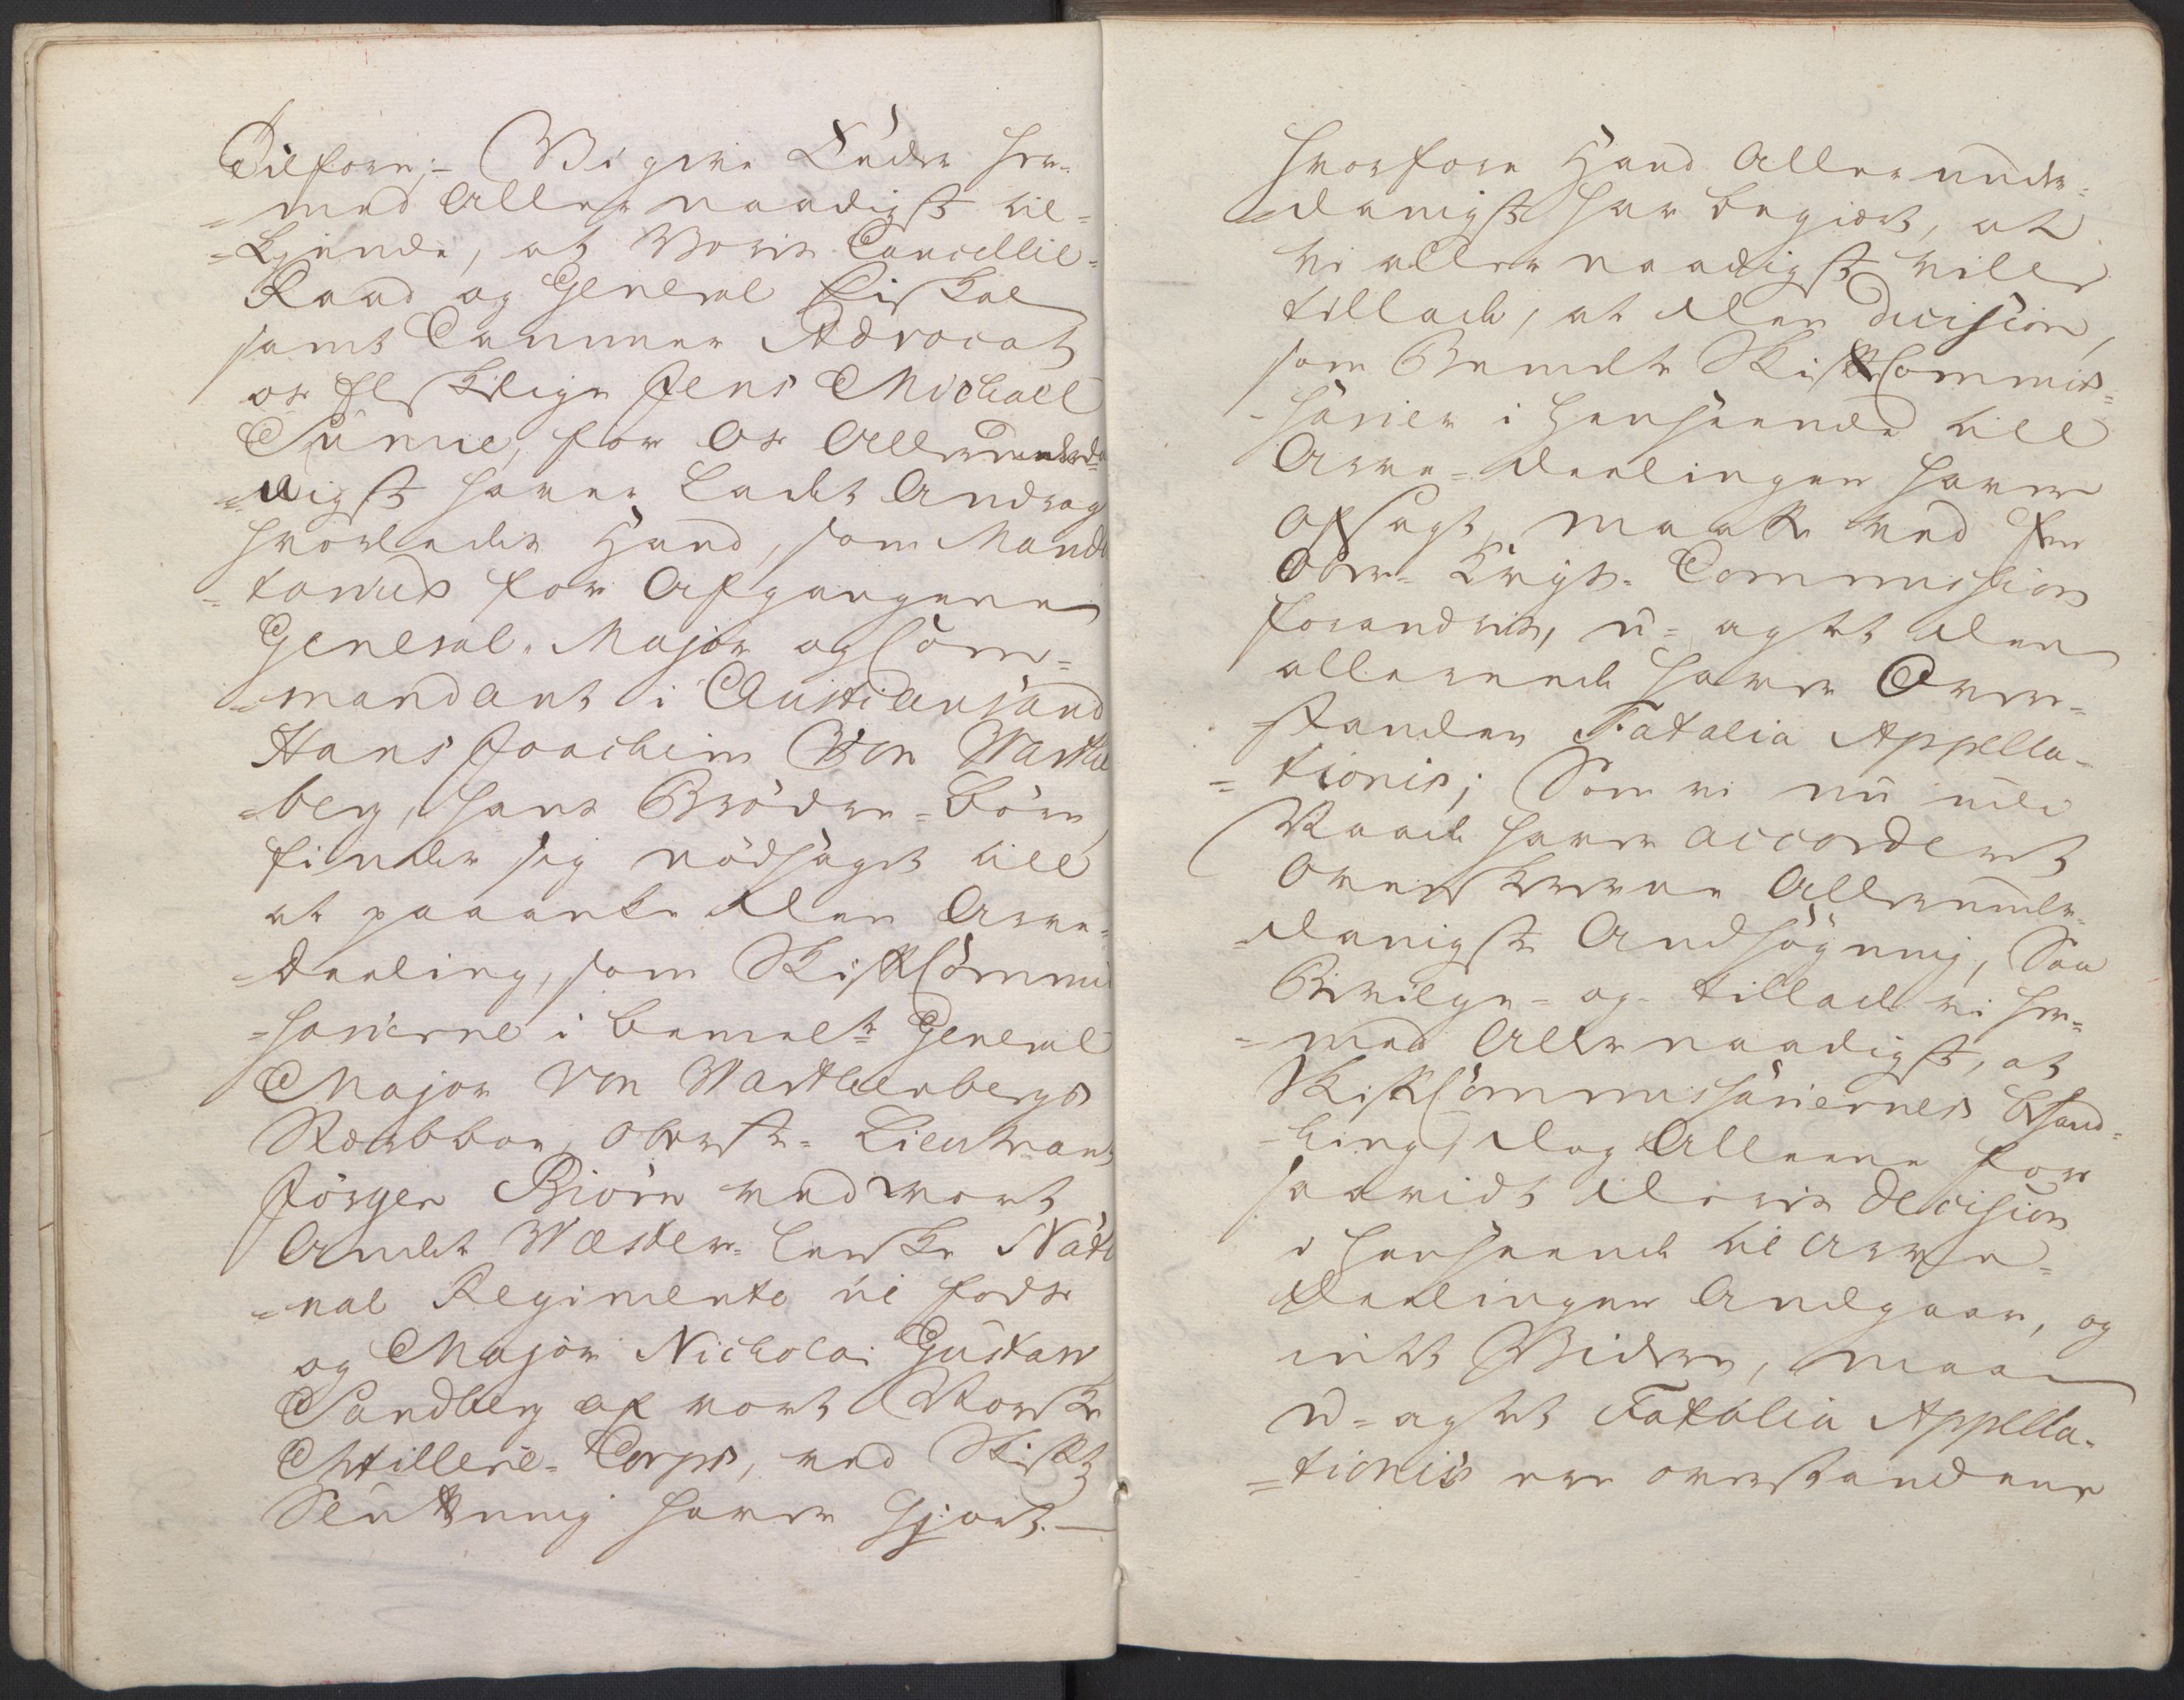 Tilforn;- Vi give Eder her-
=med Allernaadigst til=
=kjende, at Voris Cancellie=
Raad og General Fiskal
samt Cammer Advocat
os Elskelige Jens Michael
Sünnie, for Os Allerunderda
=nigst haver ladet Andrage
hvorledes Hand, som Manda
=tarius for Afgangene
General-Major og Com=
=mandant i Christiansand
Hans Joachim Von Warthen
=berg, hans Brödre-Börn
finder sig nödsaget till
at paaanke den Arve=
=deeling, som Skifte Commis
=sarierne i bemelte General
Major Von Warthenbergs
Stervboe, Oberst-Lieutenant
Jörgen Biörn ved vort
Andet Vesterlenske Natio
=nal Regimente til fods
og Major Nicholai Gustav
Sandberg af vort Norske
Artillerie-Corps, ved Skiftets
Slutning haver Gjort.-
hvorfore Hand Allerunder=
=danigst har begiært, at
Vi allernaadigst ville
tillade, at den Decision,
som Bemelte Skifte Commis=
=sarier i henseende till
Arve-Deelingen haver
Afsagt, maatte ved en
Over-Krigs-Commission
forandres, u-agtet den
allereede haver Over=
=standen Fatalia Appella-
=tionis; Som vi nu udi
Raadet haver accorderet
Ovenskrevne Allerunder=
=danigste Andsögning, Saa
Bevilge- og tillade vi her=
=med Allernaadigst, at
Skifte Commissariernes behand=
=ling, dog Alleene for
saavidt deris Decision
i henseende til Arve=
Deelingen Andgaar, og
intet Videre, maa
u-agtet Fatalia Appella-
=tionis ere overstandene